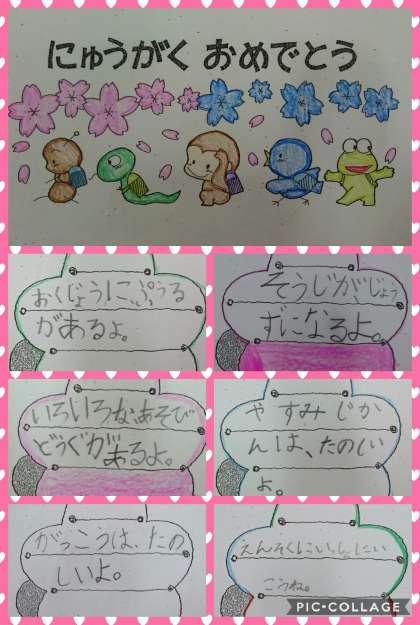 にゅうがく おめでとう
おくじょうにぷうる
があるよ。
そうじが、じょう
ずになるよ。
いろいろなあそび
どうぐがあるよ。
やすみじか
んは、たのしい
よ。
がっこうは、たの
しいよ。
えんそくにいっしょにい
こうね。
PIC•COLLAGE